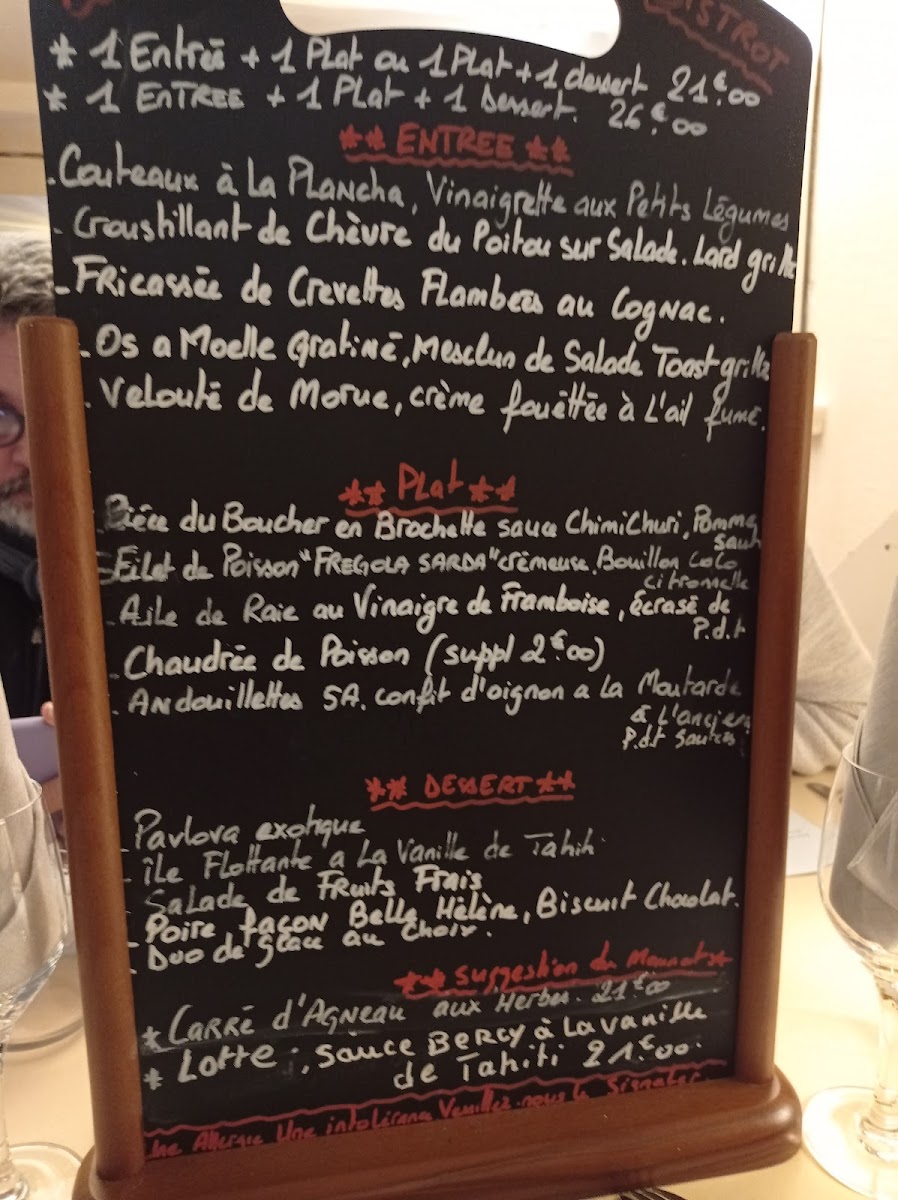 BISTROT
* 1 Entrée + 1 Plat ou 1 Plat + 1 dessert 21€.00
* 1 ENTREE + 1 Plat + 1 Dessert. 26.€.00
** ENTREE **
- Couteaux à La Plancha, Vinaigrette aux Petits Légumes
- Croustillant de Chèvre du Poitou sur Salade. Lard grillé
- FRicassée de Crevettes Flambées au Cognac.
- Os a Moelle gratiné, Mesclun de Salade Toast grillé
- Velouté de Morue, crème fouêttée à L'ail fumé.
** Plat **
- Pièce du Boucher en Brochette sauce ChimiChuri, Pomme
saut
- Filet de Poisson "FREGOLA SARDA" crèmeuse, Bouillon Coco
citronnelle
- Aile de Raie au Vinaigre de Framboise, écrasé de
P.d.t
- Chaudrée de Poisson (suppl 2€.00)
- ANdouillettes 5A. confit d'oignon a La Moutarde
à L'ancienn
P.d.t Sautées
** DESSERT **
- Pavlova exotique
- île Flottante a La Vanille de Tahiti
- Salade de Fruits Frais
- Poire, façon Belle Hélène, Biscuit Chocolat.
- Duo de glace au Choix.
** Suggestion du Moment **
* CARRÉ d'Agneau aux Herbes. 21€.00
* Lotte, Sauce BERCY à La vanille
de Tahiti 21€.00.
Une Allergie Une intolérance Veuillez-nous le Signaler.